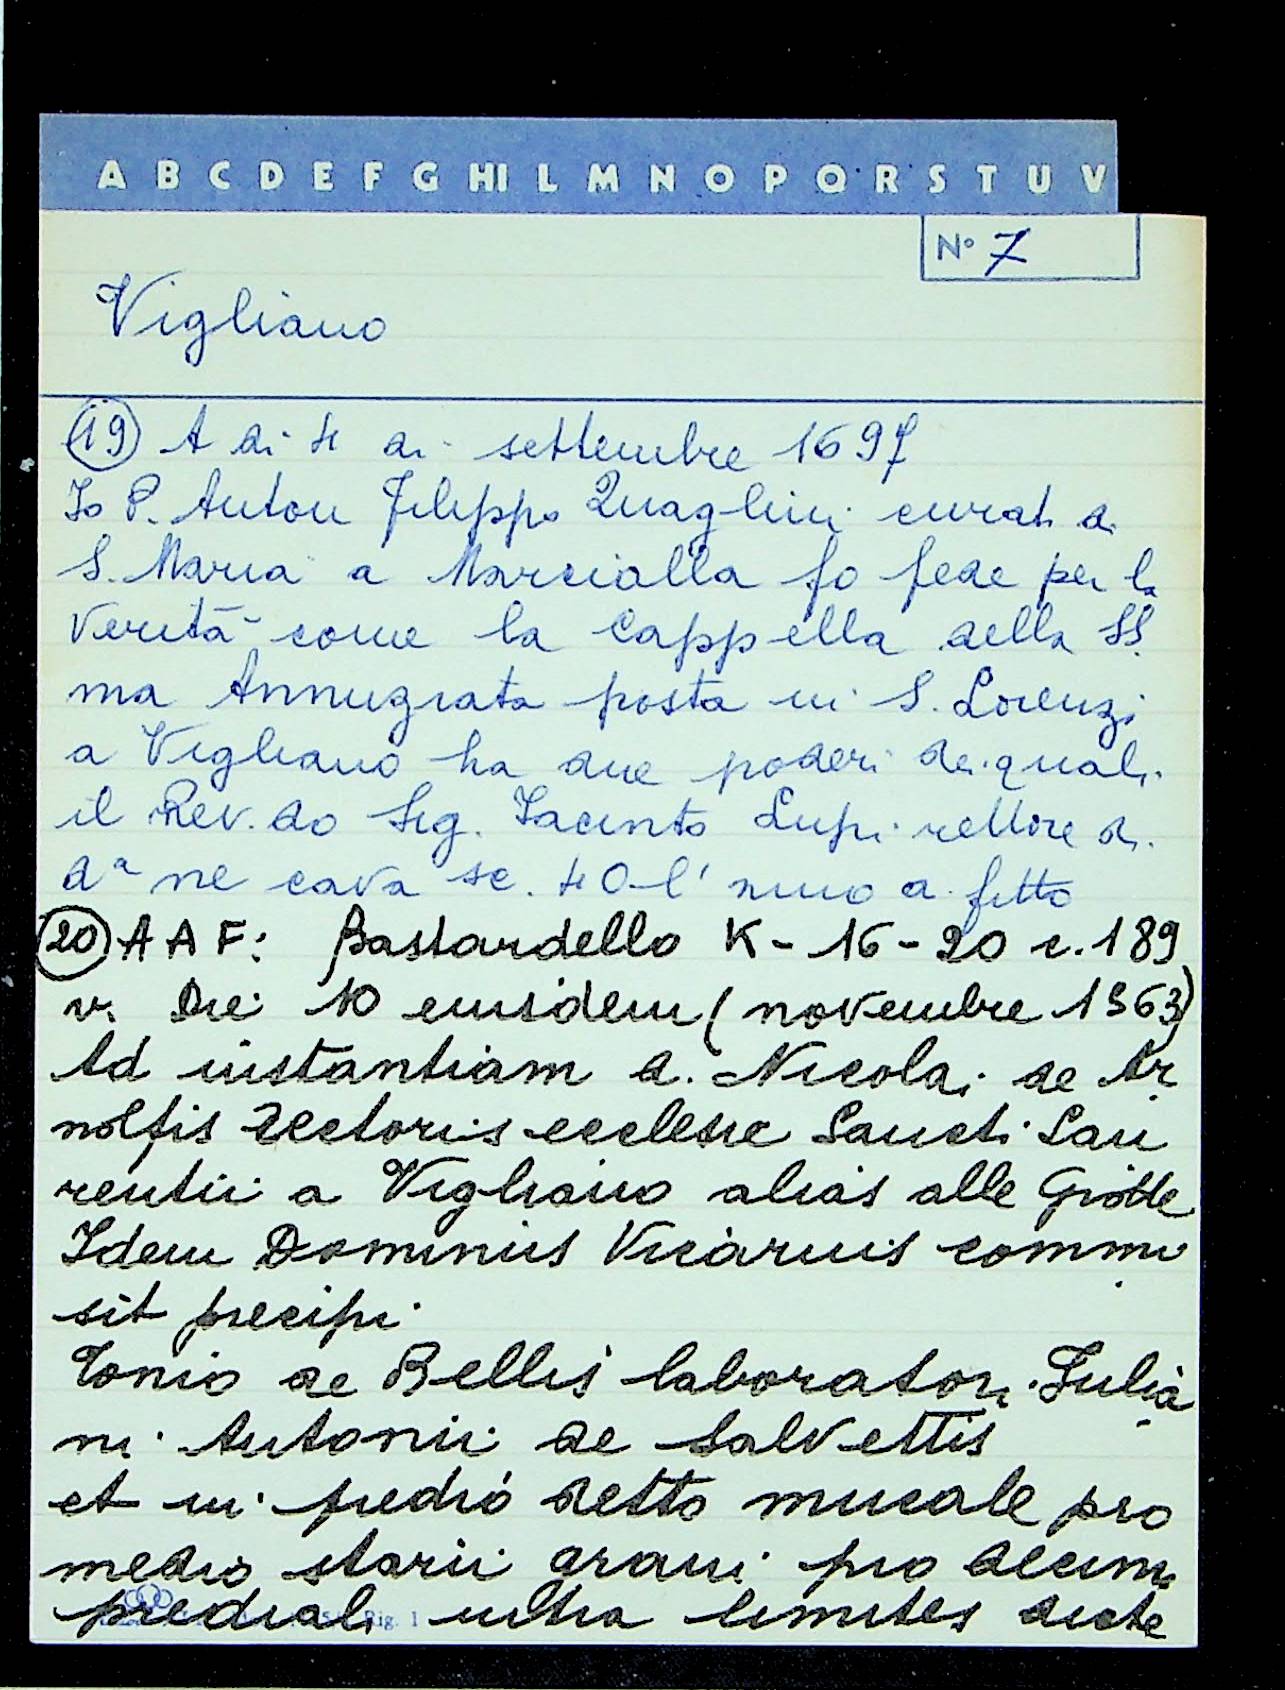 A B C D E F G HI L M N O P Q R S T U V
N° 7
Vigliano
(19) A di 4 di settembre 1697
Io P. Anton Filippo Quaglini curato di
S. Maria a Marcialla fo fede per la
verità come la Cappella della SS.
ma Annuziata posta in S. Lorenzo
a Vigliano ha due poderi de quali
il Rev.do Sig. Iacinto Lupi rettore di
da ne cava sc. 40 l' anno a fitto
(20) A A F: Bastardello K - 16 - 20 c. 189
v. Die 10 eiusdem (novembre 1363)
Ad instantiam d. Nicolai de Ar
nolfis rectoris ecclesie Sancti Lau
rentii a Vigliano alias alle Grotte
Idem Dominus Vicarius commi
sit precipi
Tonio de Bellis laboratori Iulia
ni Antonii de Salvettis
et in predio detto mucale pro
medio starii grani pro decima
prediali ultra limites dicte
Rig. 1